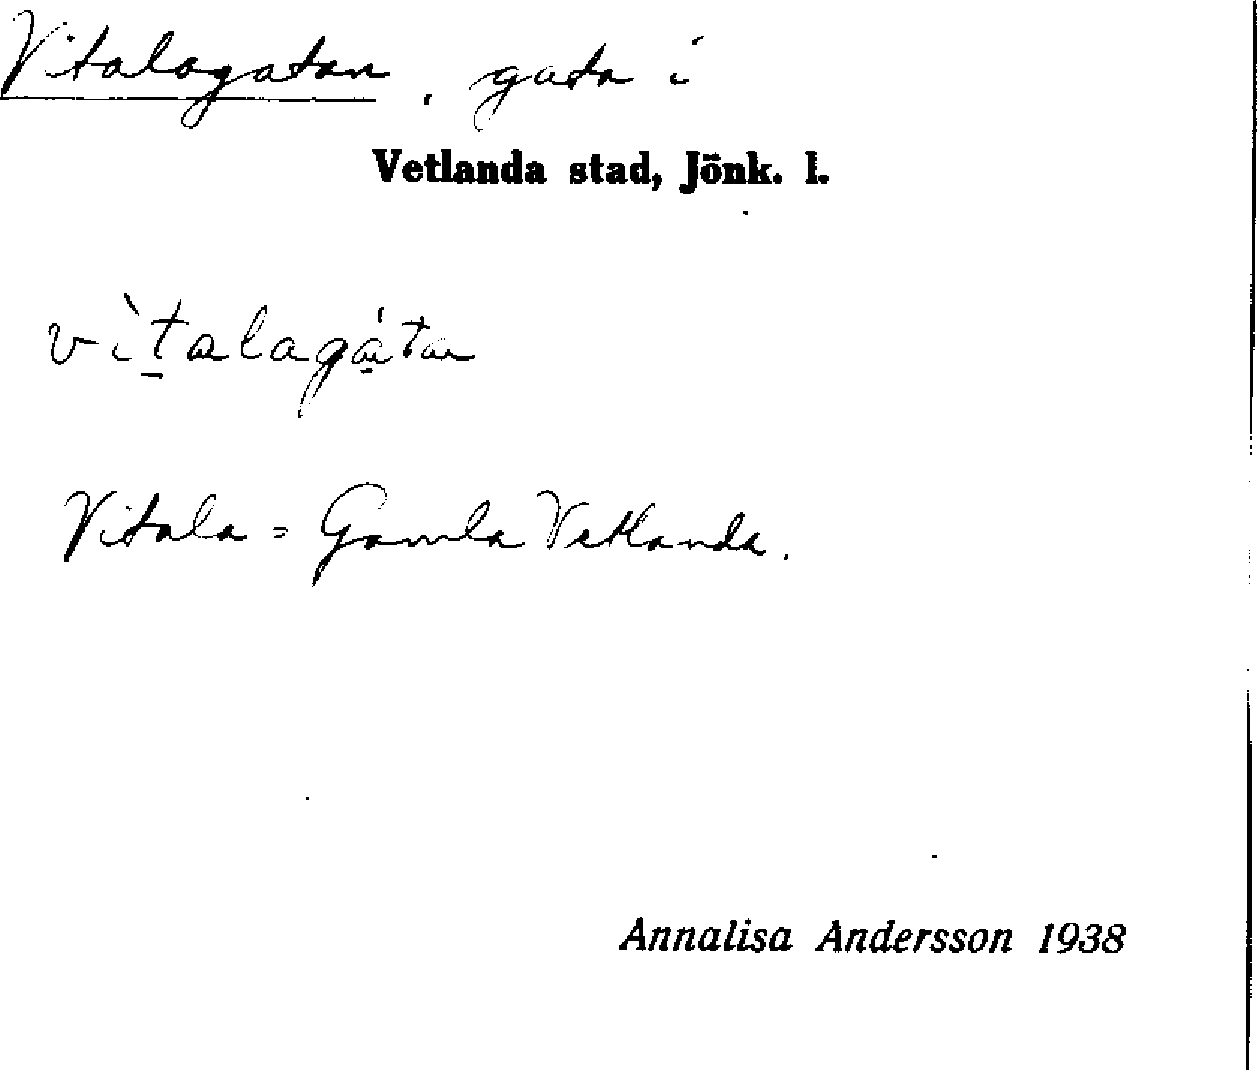 Vitalagatan, gata i
Vetlanda stad, Jönk. l.
vìt̠alagá̠tan
Vitala = Gamla Vetlanda.
Annalisa Andersson 1938